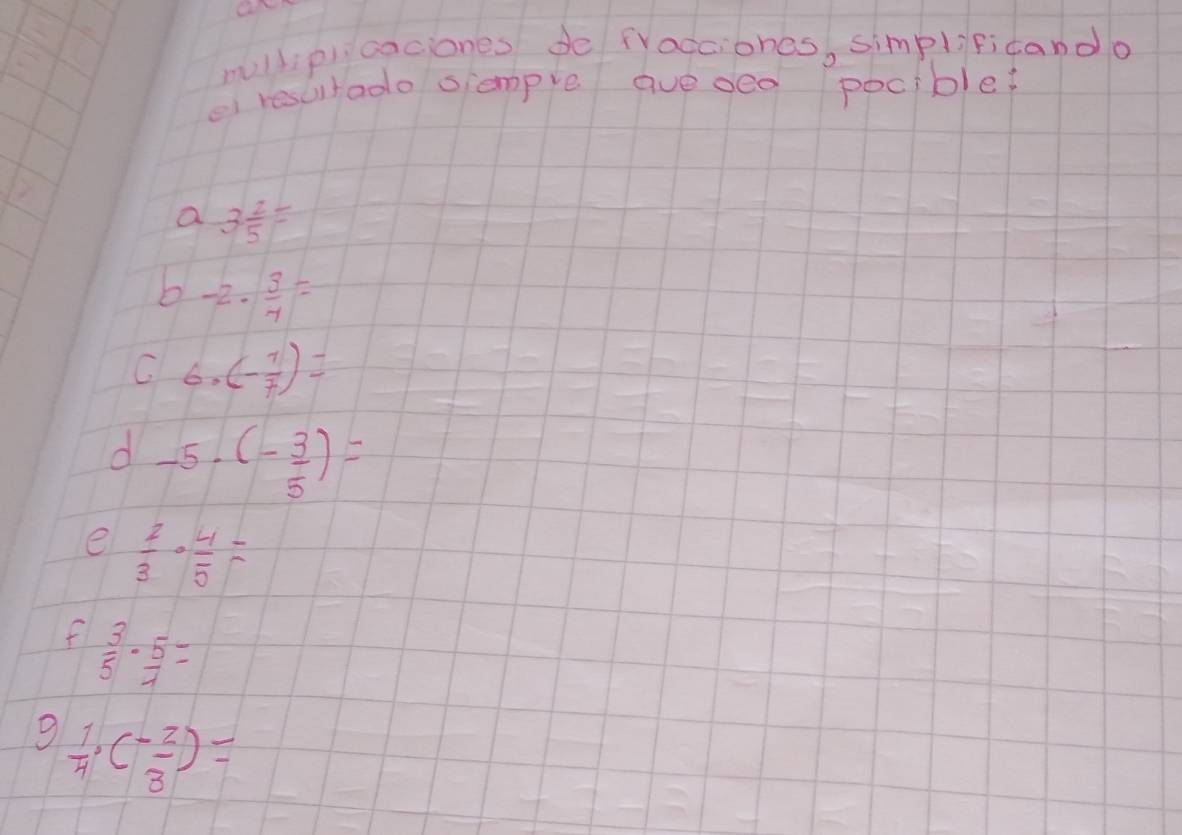 multiplicaciones de fracciones, simplificando
el resultado siempre que sea pocible:
a 3 2/5 =
b -2 · 3/4 =
c 6 · (- 1/7) =
d -5 · (- 3/5) =
e 2/3 · 4/5 =
f 3/5 · 5/4 =
g 1/4 · (- 2/3) =